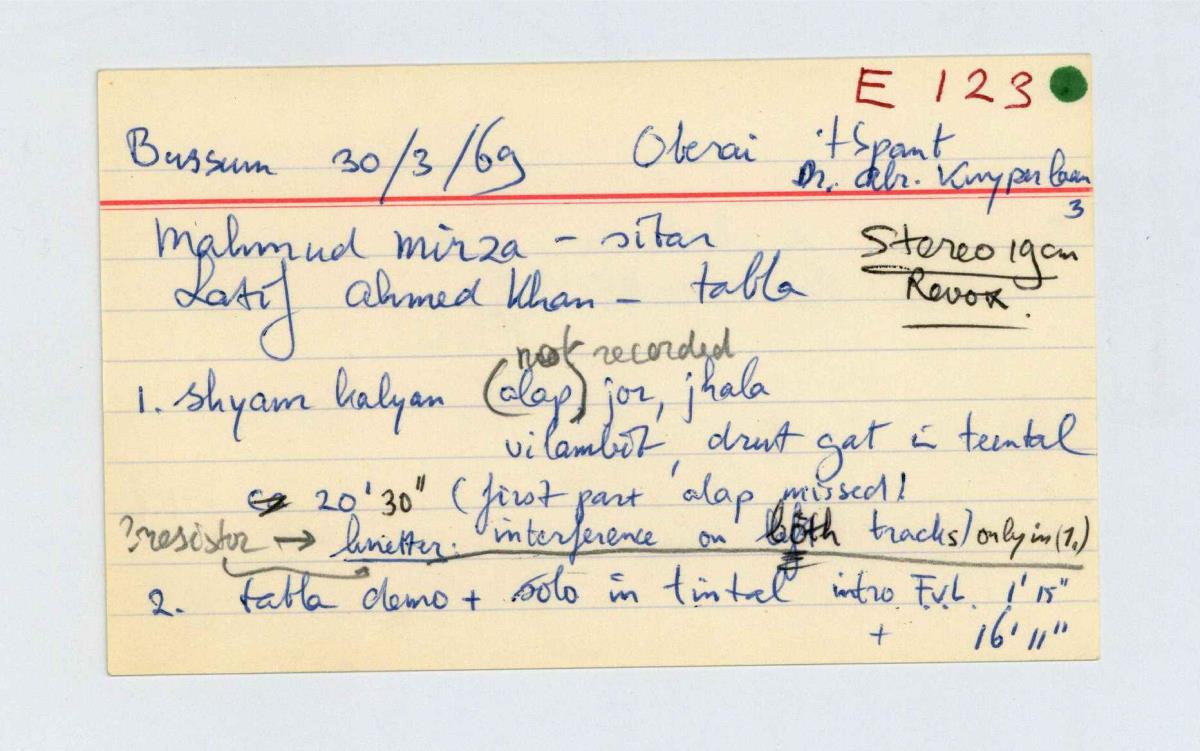 E 123
Bussum 30/3/69 Oberai 't Spant
Dr. Abr. Kuyperlaan
3
Mahmud Mirza - sitar
Stereo 19cm
Latif Ahmed Khan - tabla
Revox.
not recorded
1. Shyam kalyan (alap) jor, jhala
vilambit, drut gat in teental
20'30" (first part alap missed!
?resistor → knetter: interference on both tracks) only in (1.)
2. tabla demo + solo in tintal intro F.v.L. 1'15"
+ 16'11"